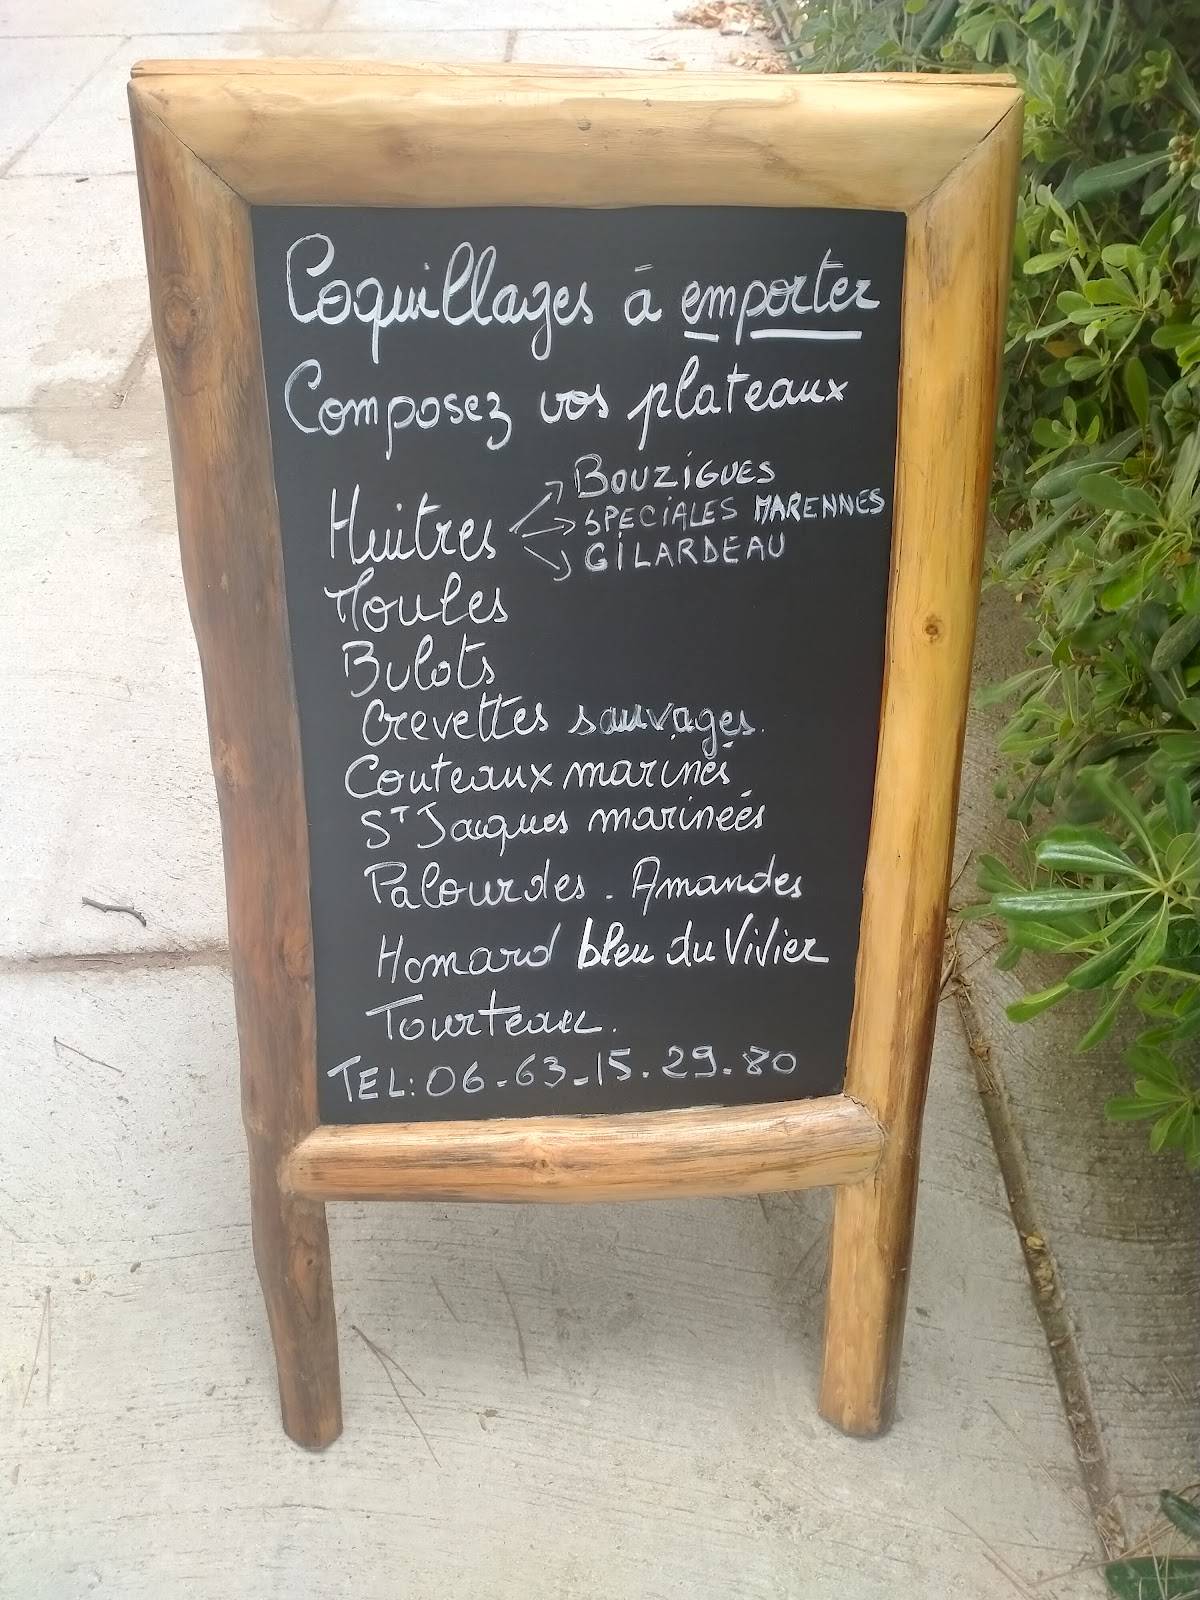 Coquillages à emporter
Composez vos plateaux
Huitres → BOUZIGUES
→ SPECIALES MARENNES
→ GILARDEAU
Moules
Bulots
Crevettes sauvages.
Couteaux marinés
ST Jacques marineés
Palourdes. Amandes
Homard bleu du Vivier
Tourteau.
TEL: 06-63-15.29.80